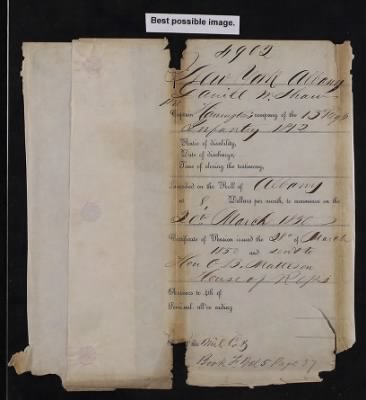 Best possible image.
4902
New York Albany
Daniel W. Shaw
Captain Harrington's company of the 15 Regt
Infantry 1812
Nature of disability,
Date of discharge,
Time of closing the testimony,
Inscribed on the Roll of Albany
at 8, Dollars per month, to commence on the
20th March 1850
Certificate of Pension issued the 28th of March
1850 and sent to
Hon O. B. Matteson
House of Reps
Arrears to 4th of
Semi-anl. all'ce ending
Book F Vol 5 Page 37